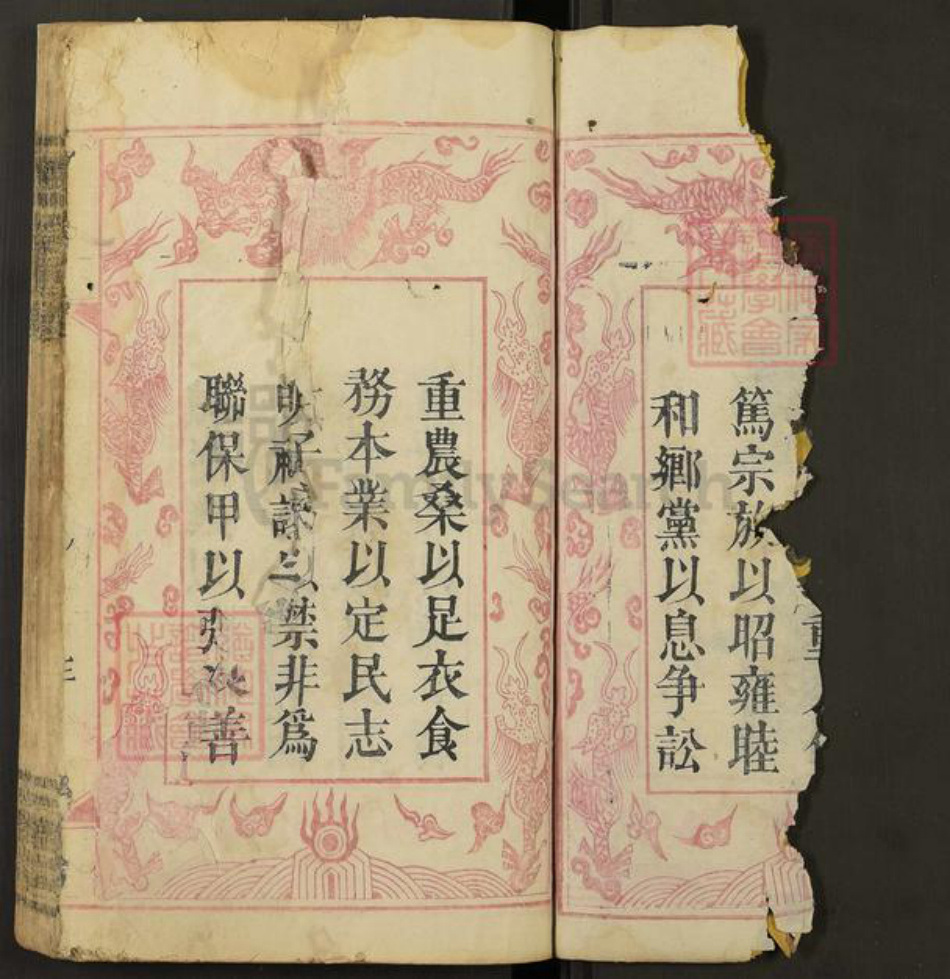 重
篤宗族以昭雍睦
和鄉黨以息争訟
重農桑以足衣食
務本業以定民志
以禁非爲
聯保甲以善
FamilySearch
學會
藏